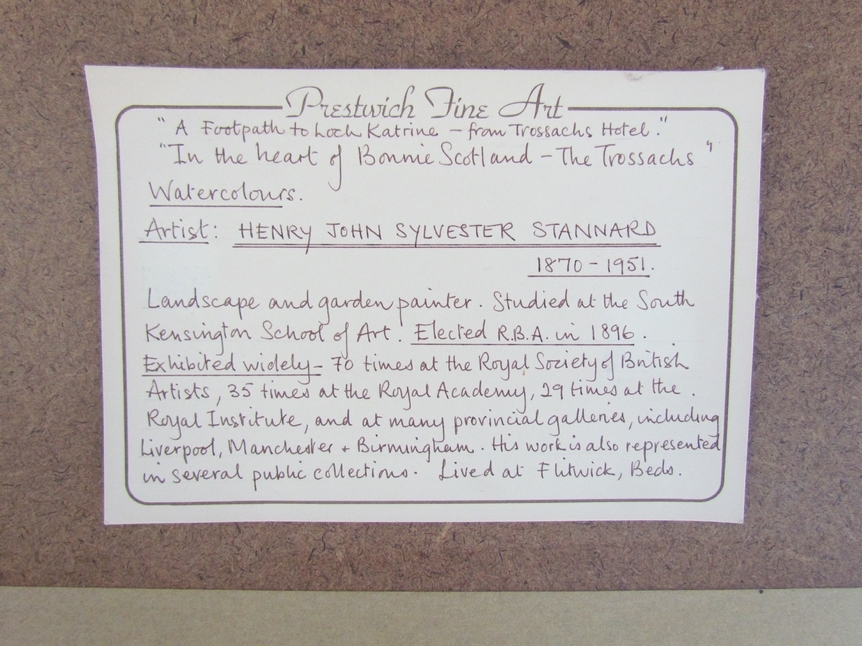 Prestwich Fine Art
"A Footpath to Loch Katrine - from Trossachs Hotel."
"In the heart of Bonnie Scotland - The Trossachs"
Watercolours.
Artist: HENRY JOHN SYLVESTER STANNARD
1870 - 1951.
Landscape and garden painter. Studied at the South
Kensington School of Art. Elected R.B.A. in 1896.
Exhibited widely - 70 times at the Royal Society of British
Artists, 35 times at the Royal Academy, 29 times at the
Royal Institute, and at many provincial galleries, including
Liverpool, Manchester + Birmingham. His work is also represented
in several public collections. Lived at Flitwick, Beds.